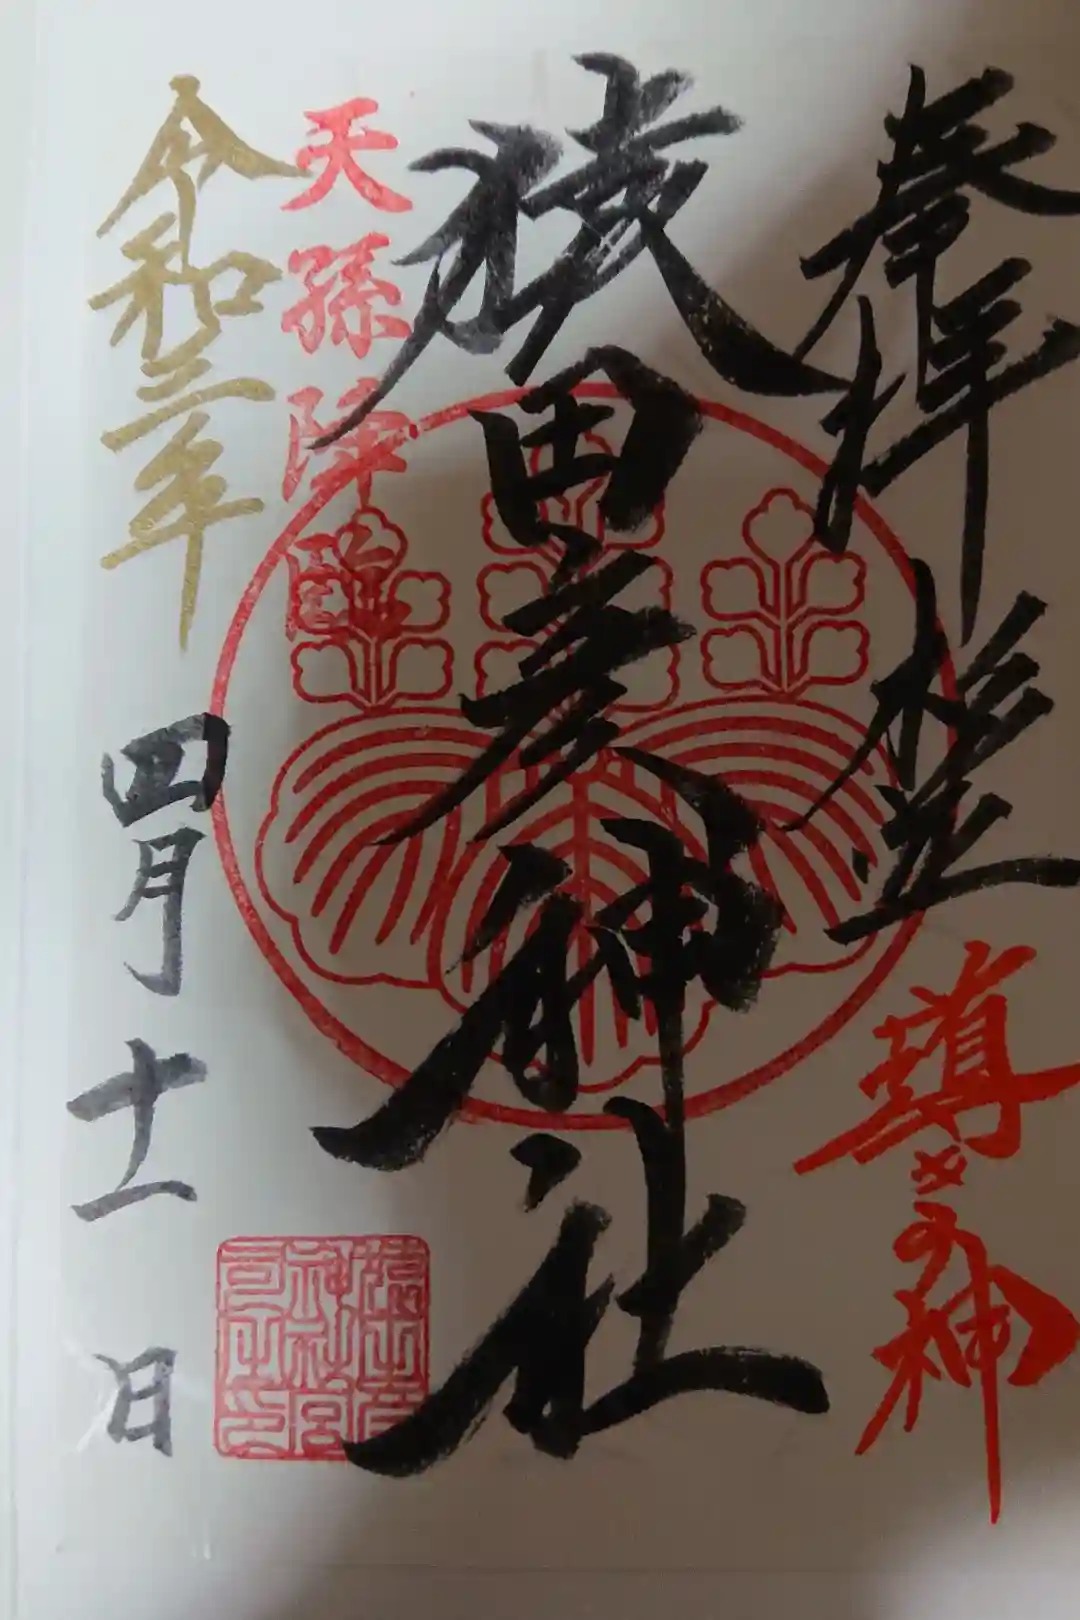 奉拝 杉並
導きの神
猿田彦神社
天孫降臨
令和三年
四月十一日
猿田彦
神社宮
司之印